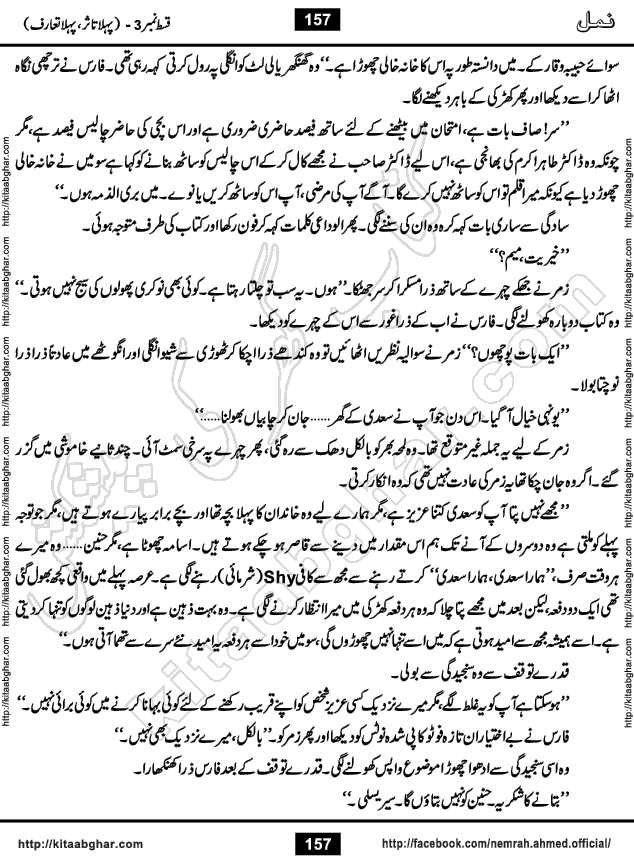 قسط نمبر 3 - (پہلا تاثر، پہلا تعارف)
157
نمل
سوائے حبیبہ وقار کے۔ میں دانستہ طور پہ اس کا خانہ خالی چھوڑا ہے۔‘‘ وہ گھنگھریالی لٹ کو انگلی پہ رول کرتی کہہ رہی تھی۔ فارس نے ترچھی نگاہ
اٹھا کر اسے دیکھا اور پھر کھڑکی کے باہر دیکھنے لگا۔
’’سر! صاف بات ہے، امتحان میں بیٹھنے کے لئے ساٹھ فیصد حاضری ضروری ہے اور اس بچی کی حاضر چالیس فیصد ہے، مگر
چونکہ وہ ڈاکٹر طاہر اکرم کی بھانجی ہے، اس لیے ڈاکٹر صاحب نے مجھے کال کر کے اس چالیس کو ساٹھ بنانے کو کہا ہے سو میں نے خانہ خالی
چھوڑ دیا ہے کیونکہ میرا قلم تو اس کو ساٹھ نہیں کرے گا۔ آگے آپ کی مرضی، آپ اس کو ساٹھ کریں یا نوے۔ میں بری الذمہ ہوں۔‘‘
سادگی سے ساری بات کہہ کر وہ ان کی سننے لگی۔ پھر الوداعی کلمات کہہ کر فون رکھا اور کتاب کی طرف متوجہ ہوئی۔
’’خیریت، میم؟‘‘
زمر نے جھکے چہرے کے ساتھ ذرا مسکرا کر سر جھٹکا۔ ’’ہوں۔ یہ سب تو چلتا رہتا ہے۔ کوئی بھی نوکری پھولوں کی سیج نہیں ہوتی۔‘‘
وہ کتاب دوبارہ کھولنے لگی۔ فارس نے اب کے ذرا غور سے اس کے چہرے کو دیکھا۔
’’ایک بات پوچھوں؟‘‘ زمر نے سوالیہ نظریں اٹھائیں تو وہ کندھے ذرا اچکا کر ٹھوڑی سے شیو انگلی اور انگوٹھے میں عادتاً ذرا ذرا
نوچتا بولا۔
’’یونہی خیال آ گیا۔ اس دن جو آپ نے سعدی کے گھر...... جان کر چابیاں بھولنا......‘‘
زمر کے لیے یہ جملہ غیر متوقع تھا۔ وہ لمحہ بھر کو بالکل دھک سے رہ گئی، پھر چہرے پہ سرخی سمٹ آئی۔ چند ثانیے خاموشی میں گزر
گئے۔ اگر وہ جان چکا تھا یہ زمر کی عادت نہیں تھی کہ وہ انکار کرتی۔
’’مجھے نہیں پتا آپ کو سعدی کتنا عزیز ہے، مگر ہمارے لیے وہ خاندان کا پہلا بچہ تھا اور بچے برابر پیارے ہوتے ہیں، مگر جو توجہ
پہلے کو ملتی ہے وہ دوسروں کے آنے تک ہم اس مقدار میں دینے سے قاصر ہو چکے ہوتے ہیں۔ اسامہ چھوٹا ہے، مگر حنین...... وہ میرے
ہر وقت صرف، ’’ہمارا سعدی، ہمارا سعدی‘‘ کرتے رہنے سے مجھ سے کافی Shy (شرمائی) رہنے لگی ہے۔ عرصہ پہلے میں واقعی کچھ بھول گئی
تھی ایک دو دفعہ، لیکن بعد میں مجھے پتا چلا کہ وہ ہر دفعہ کھڑکی میں میرا انتظار کرنے لگی ہے۔ وہ بہت ذہین ہے اور دنیا ذہین لوگوں کو تنہا کر دیتی
ہے۔ اسے ہمیشہ مجھ سے امید ہوتی ہے کہ میں اسے تنہا نہیں چھوڑوں گی، سو میں خود اسے ہر دفعہ یہ امید نئے سرے سے تھما آتی ہوں۔‘‘
قدرے توقف سے وہ سنجیدگی سے بولی۔
’’ہو سکتا ہے آپ کو یہ غلط لگے، مگر میرے نزدیک کسی عزیز شخص کو اپنے قریب رکھنے کے لئے کوئی بہانا کرنے میں کوئی برائی نہیں۔‘‘
فارس نے بے اختیار ان تازہ فوٹو کاپی شدہ نوٹس کو دیکھا اور پھر زمر کو۔ ’’بالکل، میرے نزدیک بھی نہیں۔‘‘
وہ اسی سنجیدگی سے ادھورا چھوڑا موضوع واپس کھولنے لگی۔ قدرے توقف کے بعد فارس ذرا کھنکھارا۔
’’بتانے کا شکریہ۔ حنین کو نہیں بتاؤں گا۔ سیریسلی۔‘‘
http://kitaabghar.com
http://kitaabghar.com
http://kitaabghar.com
http://kitaabghar.com
http://kitaabghar.com
http://kitaabghar.com
http://kitaabghar.com
http://kitaabghar.com
http://kitaabghar.com
http://kitaabghar.com
http://kitaabghar.com
http://kitaabghar.com
کتاب گھر کی پیشکش
kitaabghar.com
http://kitaabghar.com
157
http://facebook.com/nemrah.ahmed.official/